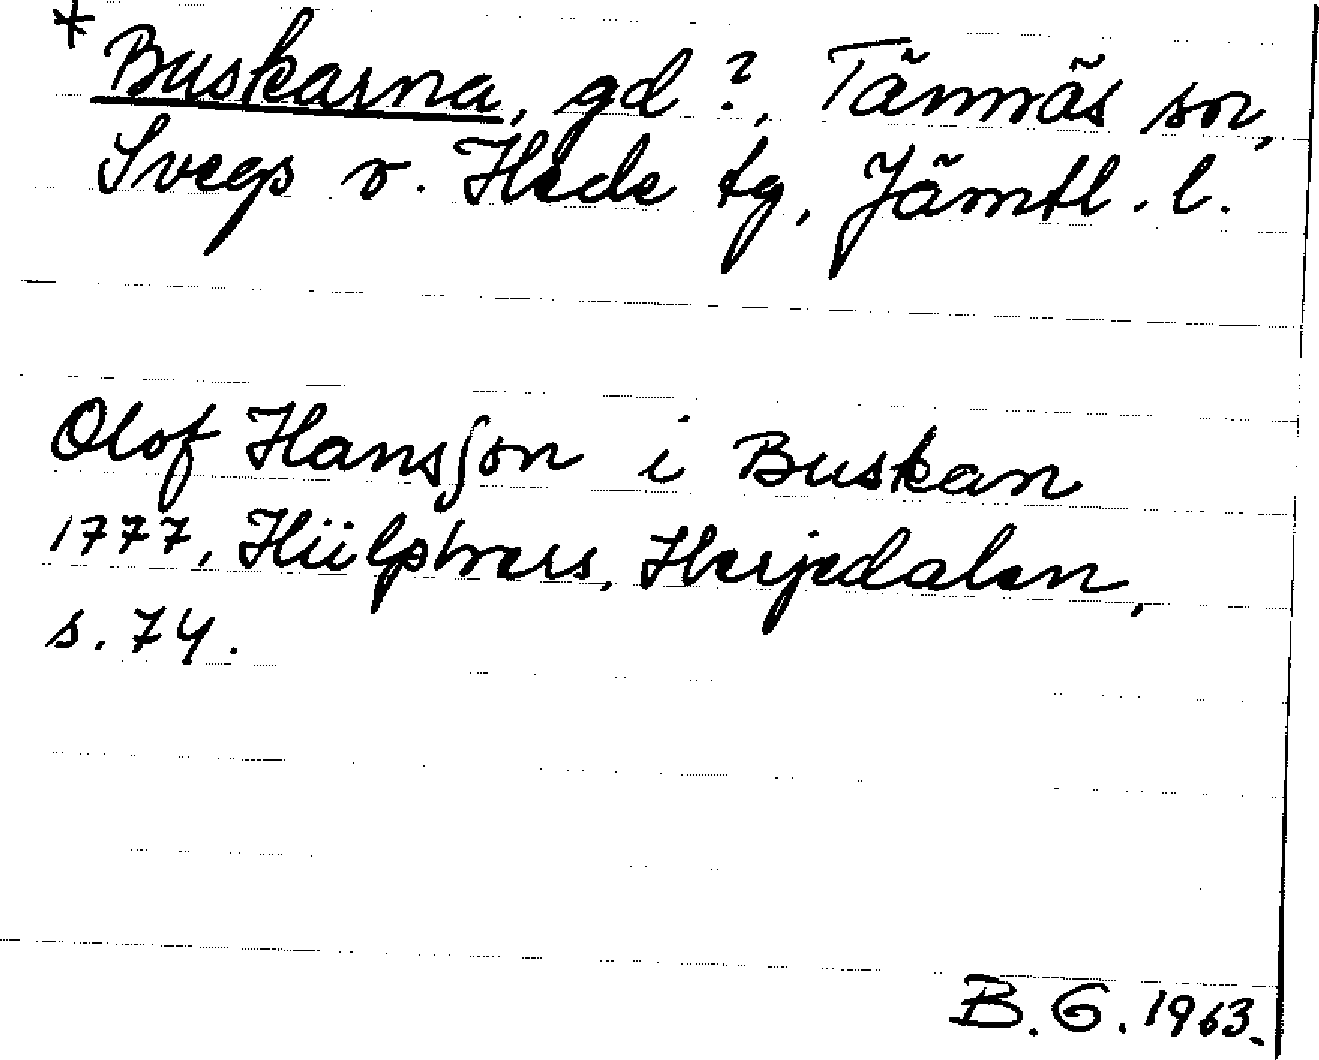 * Buskarna, gd ?, Tännäs sn,
Svegs v. Hede tg, Jämtl. l.
Olof Hansson i Buskan
1777, Hülphers, Herjedalen,
s. 74.
B. G. 1963.